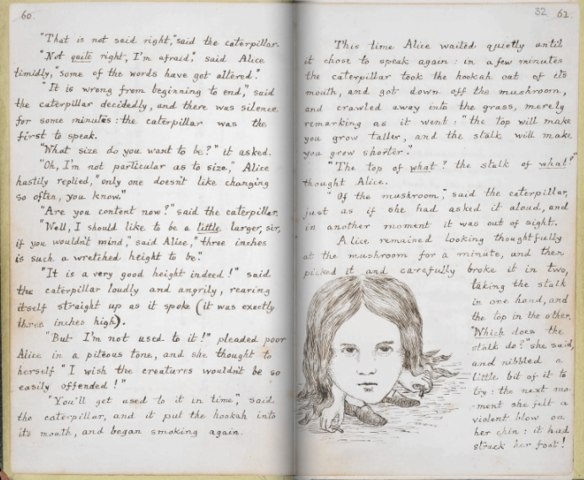 60.
"That is not said right," said the caterpillar.
"Not quite right, I'm afraid," said Alice
timidly, "some of the words have got altered."
"It is wrong from beginning to end," said
the caterpillar decidedly, and there was silence
for some minutes: the caterpillar was the
first to speak.
"What size do you want to be?" it asked.
"Oh, I'm not particular as to size," Alice
hastily replied, "only one doesn't like changing
so often, you know."
"Are you content now?" said the caterpillar.
"Well, I should like to be a little larger, sir,
if you wouldn't mind," said Alice, "three inches
is such a wretched height to be."
"It is a very good height indeed!" said
the caterpillar loudly and angrily, rearing
itself straight up as it spoke (it was exactly
three inches high).
"But I'm not used to it!" pleaded poor
Alice in a piteous tone, and she thought to
herself "I wish the creatures wouldn't be so
easily offended!"
"You'll get used to it in time," said
the caterpillar, and it put the hookah into
its mouth, and began smoking again.
32 62.
This time Alice waited quietly until
it chose to speak again: in a few minutes
the caterpillar took the hookah out of its
mouth, and got down off the mushroom,
and crawled away into the grass, merely
remarking as it went: "the top will make
you grow taller, and the stalk will make
you grow shorter."
"The top of what? the stalk of what?"
thought Alice.
"Of the mushroom," said the caterpillar,
just as if she had asked it aloud, and
in another moment it was out of sight.
Alice remained looking thoughtfully
at the mushroom for a minute, and then
picked it and carefully broke it in two,
taking the stalk
in one hand, and
the top in the other.
"Which does the
stalk do?" she said,
and nibbled a
little bit of it to
try: the next mo-
-ment she felt a
violent blow on
her chin: it had
struck her foot!